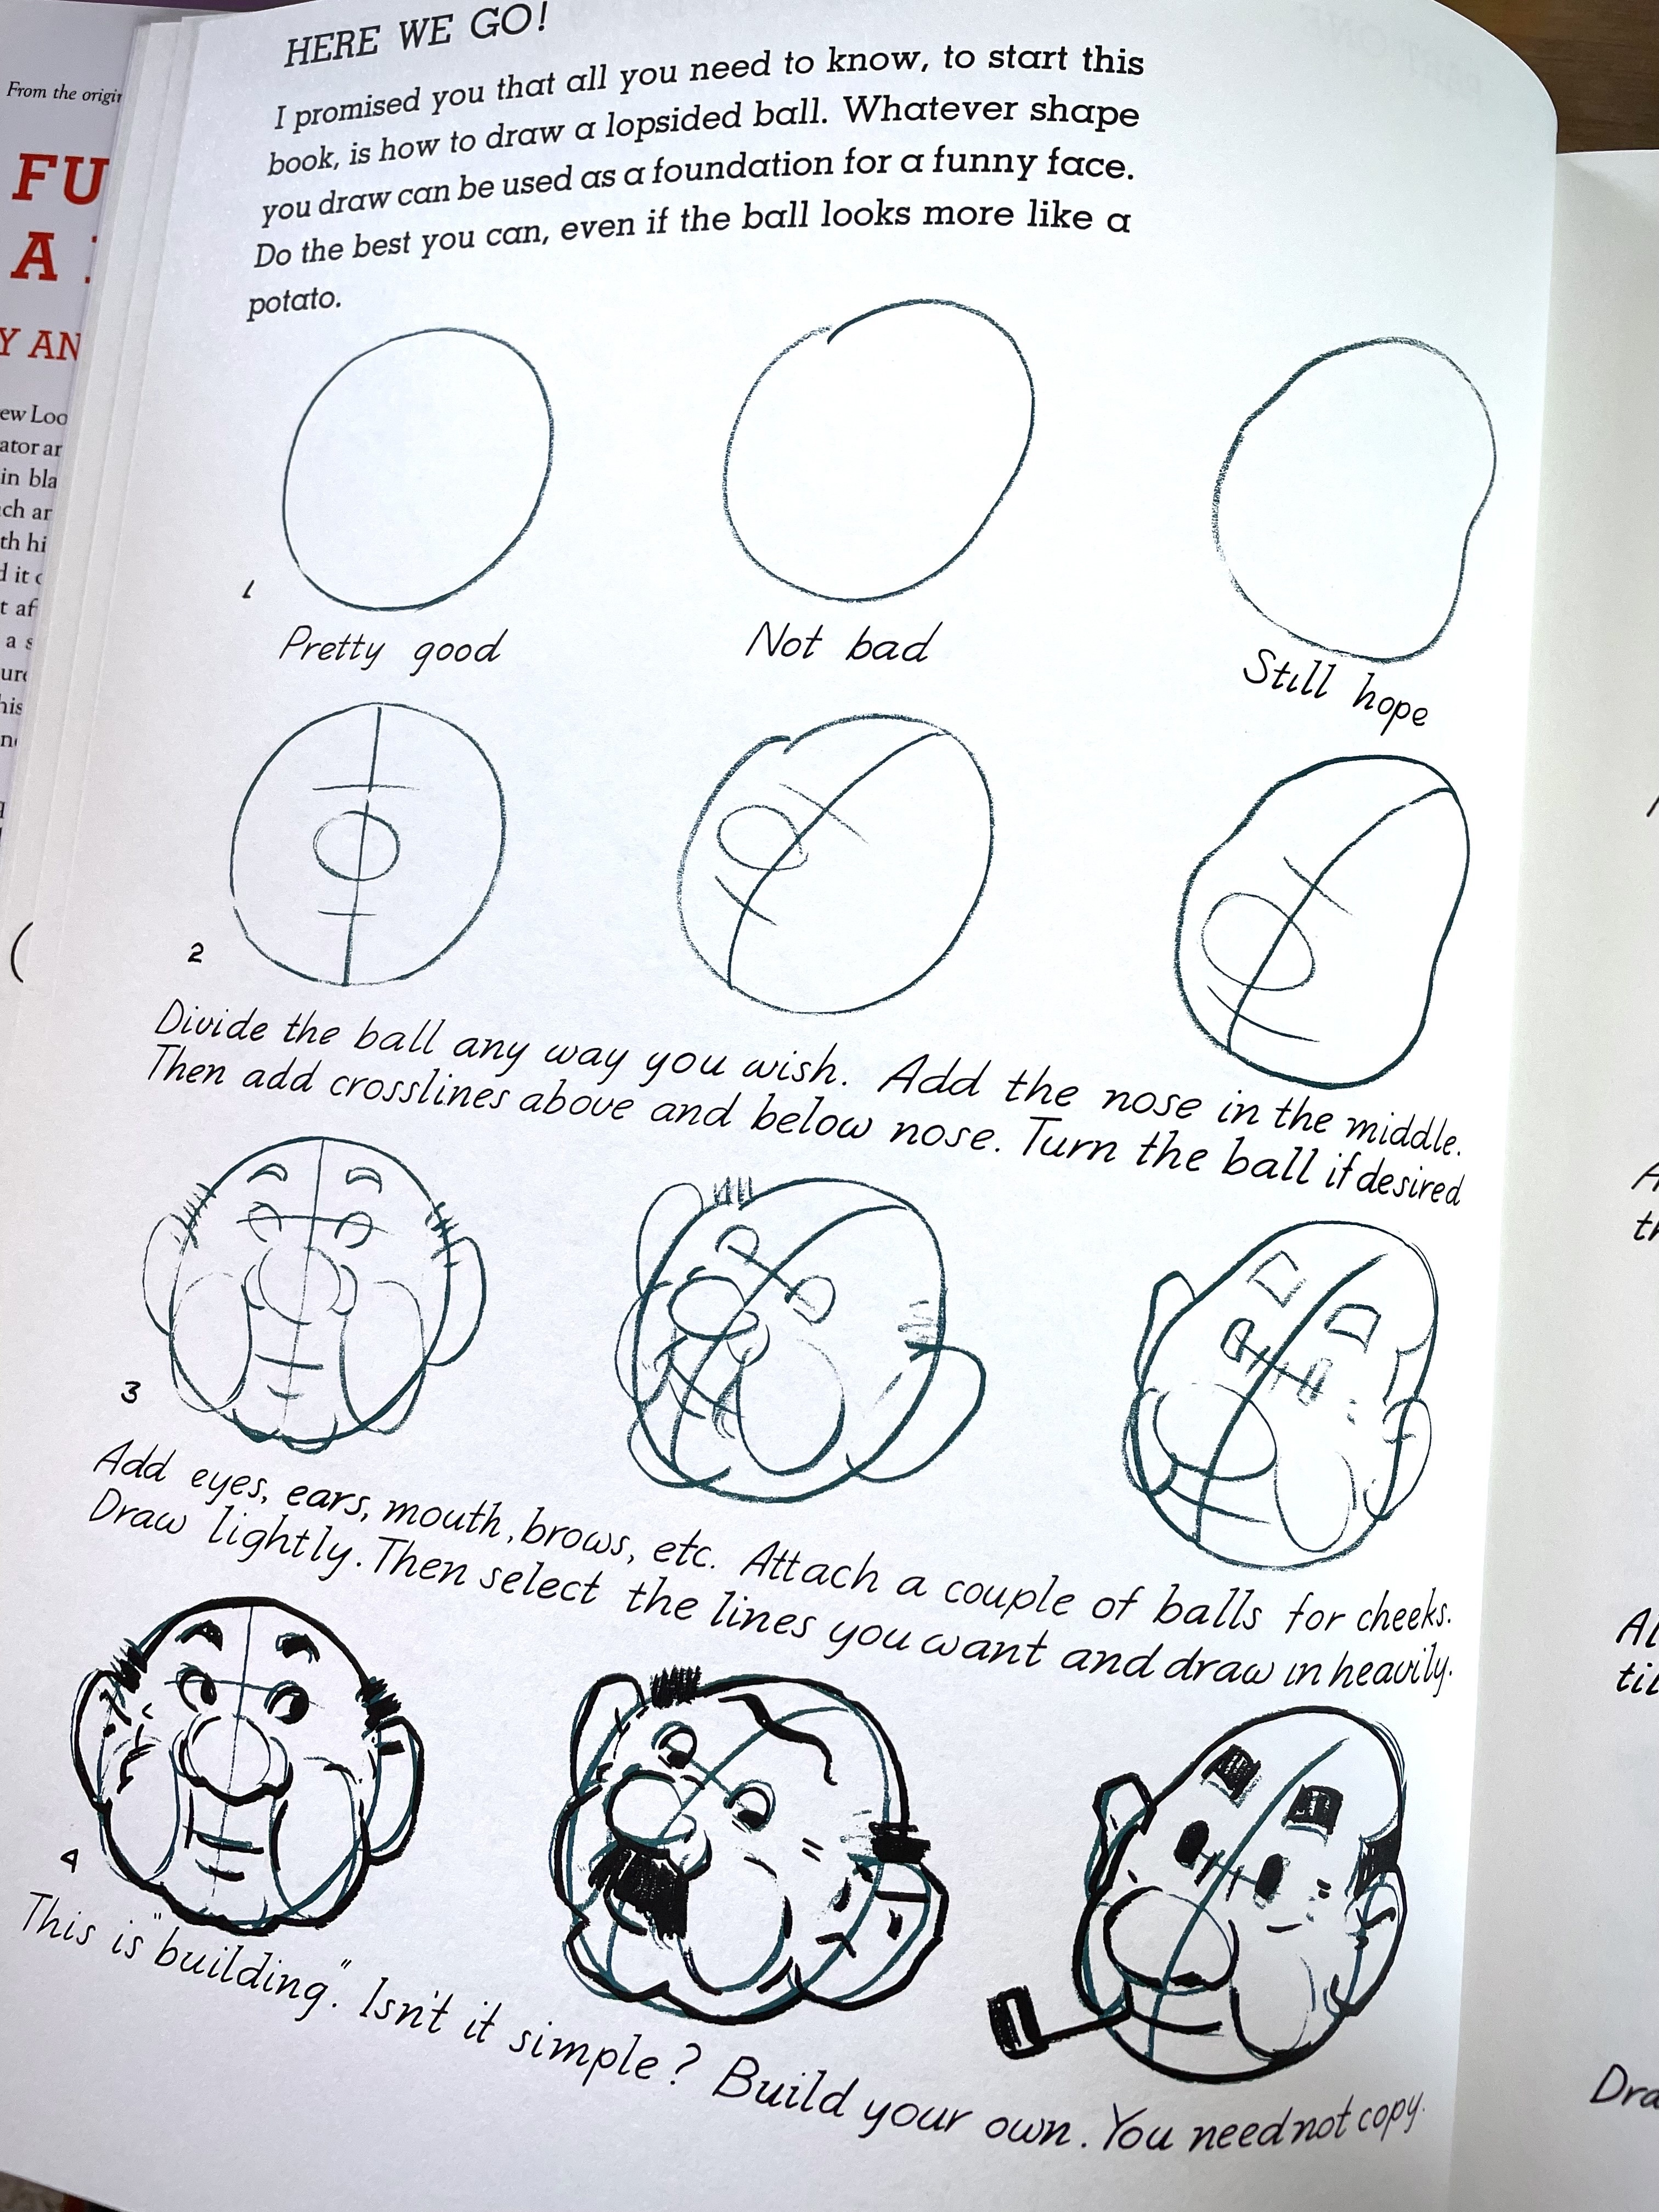 HERE WE GO!
I promised you that all you need to know, to start this
book, is how to draw a lopsided ball. Whatever shape
you draw can be used as a foundation for a funny face.
Do the best you can, even if the ball looks more like a
potato.
1
Pretty good
Not bad
Still hope
2
Divide the ball any way you wish. Add the nose in the middle.
Then add crosslines above and below nose. Turn the ball if desired
3
Add eyes, ears, mouth, brows, etc. Attach a couple of balls for cheeks.
Draw lightly. Then select the lines you want and draw in heavily.
4
This is "building". Isn't it simple? Build your own. You need not copy.
From the
FU
A
Y AN
ew
in
th
a